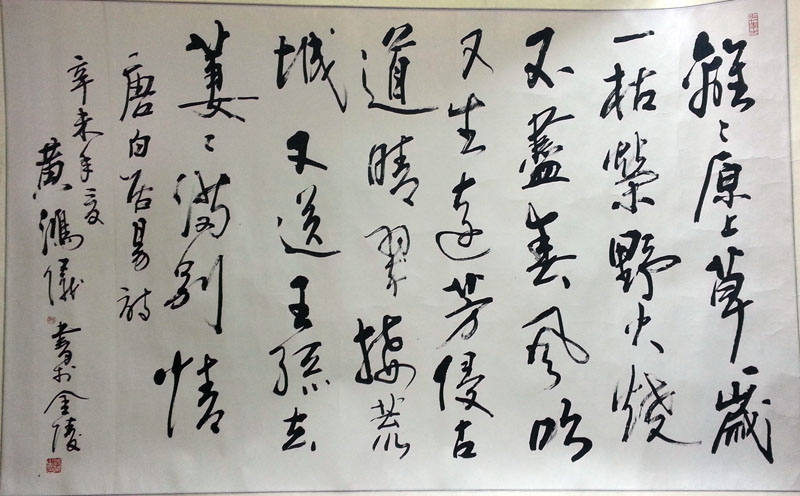 離々原上草一歲
一枯榮野火燒
不盡春風吹
又生遠芳侵古
道晴翠接荒
城又送王孫去
萋々滿別情
唐白居易詩
辛未年夏
黃鴻儀書於金陵